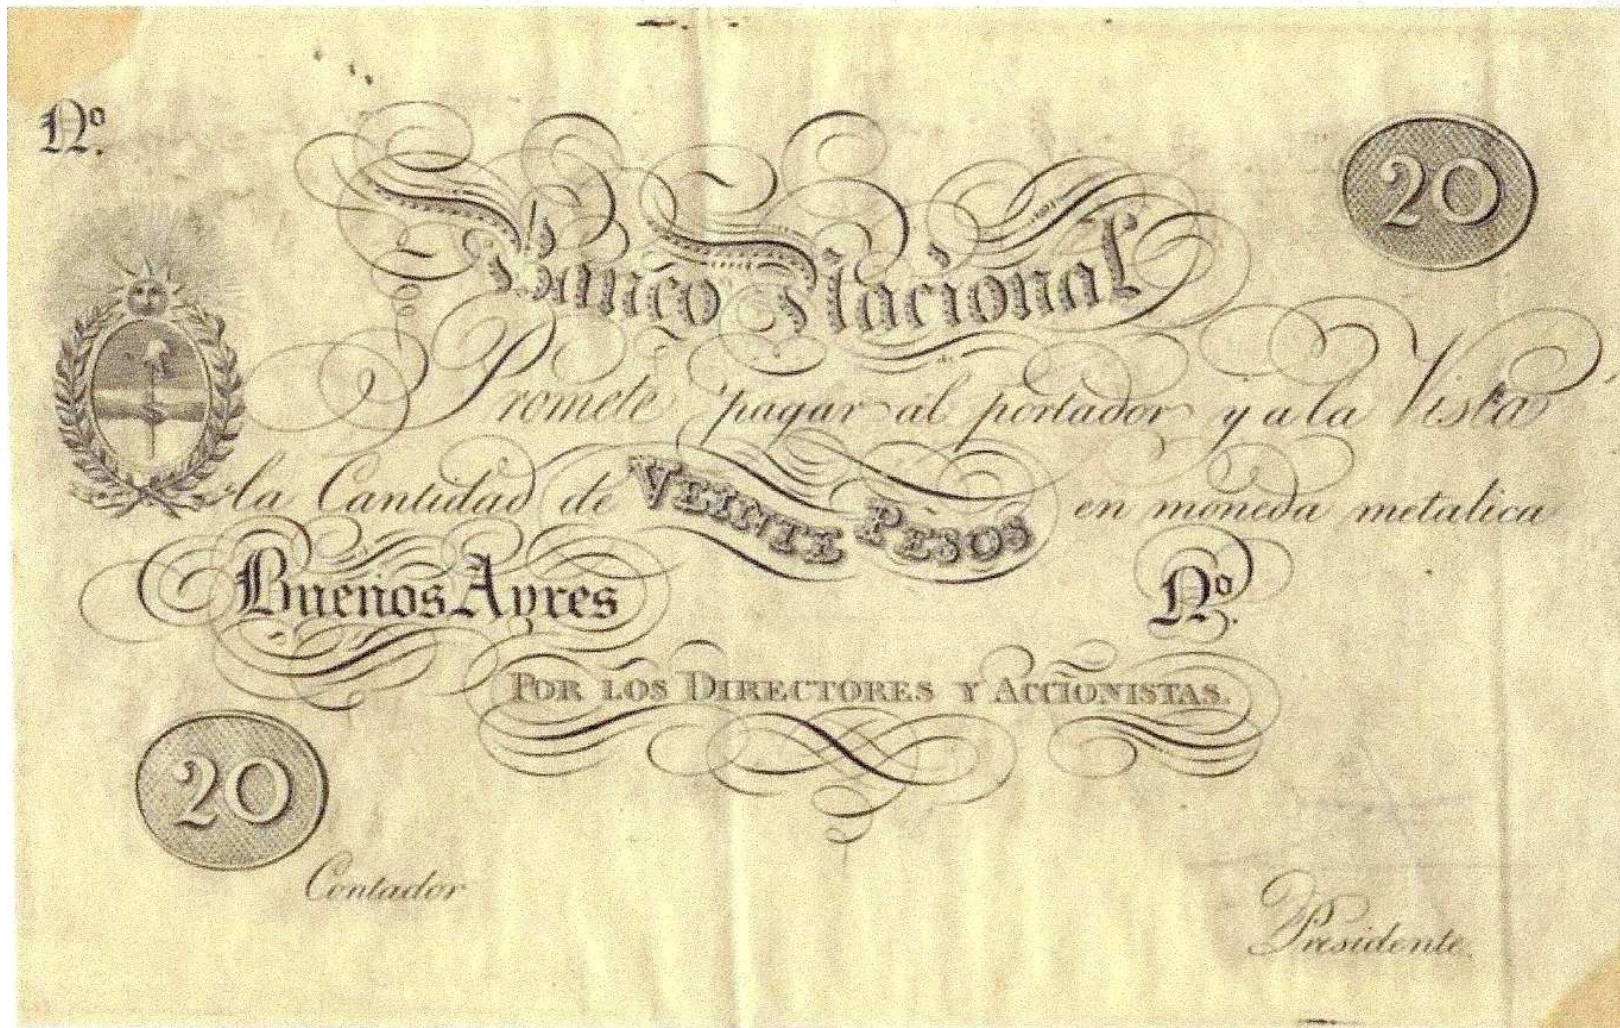 Nº.
20
Banco Nacional
Promete pagar al portador y a la Vista
la Cantidad de VEINTE PESOS en moneda metalica
Buenos Ayres Nº.
POR LOS DIRECTORES Y ACCIONISTAS.
20
Contador
Presidente.